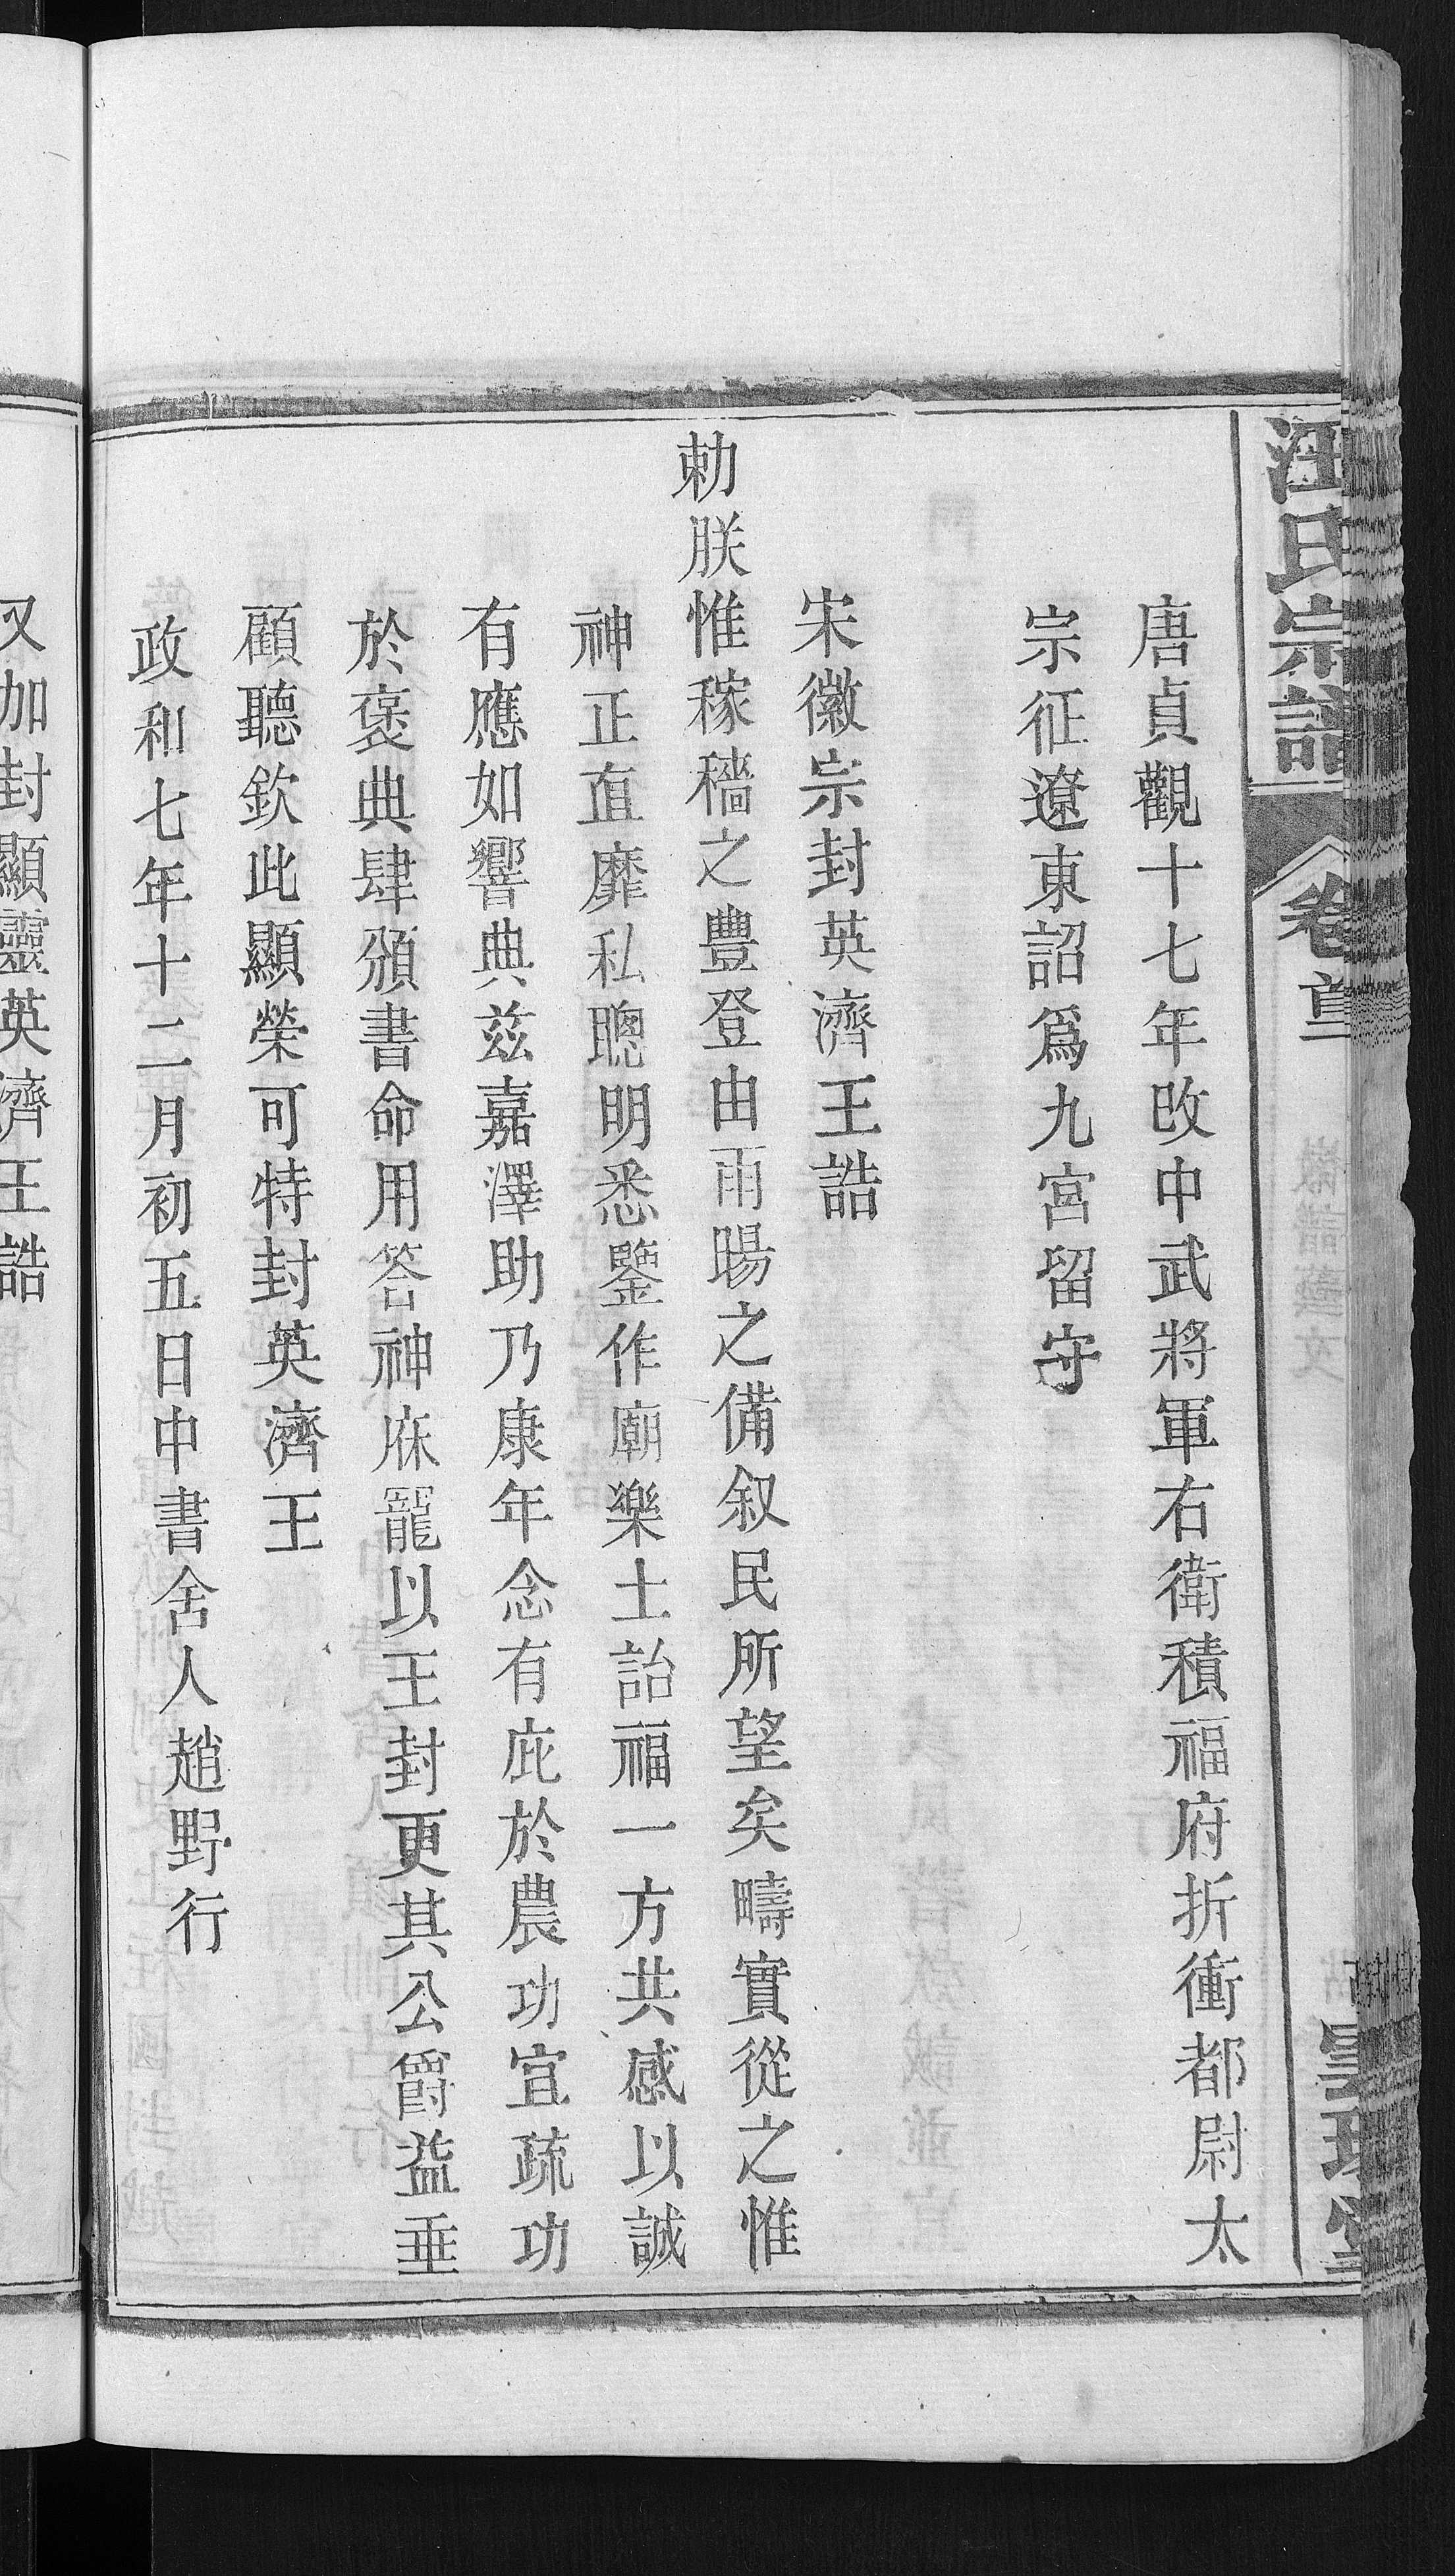 汪氏宗譜
卷首
唐貞觀十七年改中武將軍右衛積福府折衝都尉太
宗征遼東詔爲九宮留守
宋徽宗封英濟王誥
勅朕惟稼穡之豐登由雨暘之備叙民所望矣疇實從之惟
神正直靡私聰明悉鑒作廟樂土詒福一方共感以誠
有應如響典兹嘉澤助乃康年念有庇於農功宜疏功
於褒典肆頒書命用答神庥寵以王封更其公爵益垂
顧聽欽此顯榮可特封英濟王
政和七年十二月初五日中書舍人趙野行
又加封顯靈英濟王誥